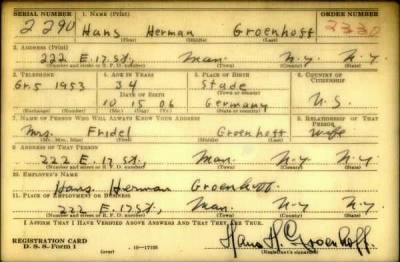 SERIAL NUMBER 1. NAME (Print) ORDER NUMBER
2290 Hans Herman Groenhoff 2330
(First) (Middle) (Last)
2. ADDRESS (Print)
222 E. 17 St, Man. N.Y. N.Y.
(Number and street or R. F. D. number) (Town) (County) (State)
3. TELEPHONE 4. AGE IN YEARS 5. PLACE OF BIRTH 6. COUNTRY OF CITIZENSHIP
Gr. 5 1953 34 Stade
DATE OF BIRTH (Town or county)
10 15 06 Germany U.S.
(Exchange) (Number) (Mo.) (Day) (Yr.) (State or country)
7. NAME OF PERSON WHO WILL ALWAYS KNOW YOUR ADDRESS 8. RELATIONSHIP OF THAT PERSON
Mrs. Fridel Groenhoff Wife
(Mr., Mrs., Miss) (First) (Middle) (Last)
9. ADDRESS OF THAT PERSON
222 E. 17 St, Man. N.Y. N.Y.
(Number and street or R. F. D. number) (Town) (County) (State)
10. EMPLOYER'S NAME
Hans Herman Groenhoff.
11. PLACE OF EMPLOYMENT OR BUSINESS
222 E. 17 St, Man. N.Y. N.Y.
(Number and street or R. F. D. number) (Town) (County) (State)
I AFFIRM THAT I HAVE VERIFIED ABOVE ANSWERS AND THAT THEY ARE TRUE.
REGISTRATION CARD
D. S. S. Form 1 16-17105 Hans H. Groenhoff.
(Registrant's signature)